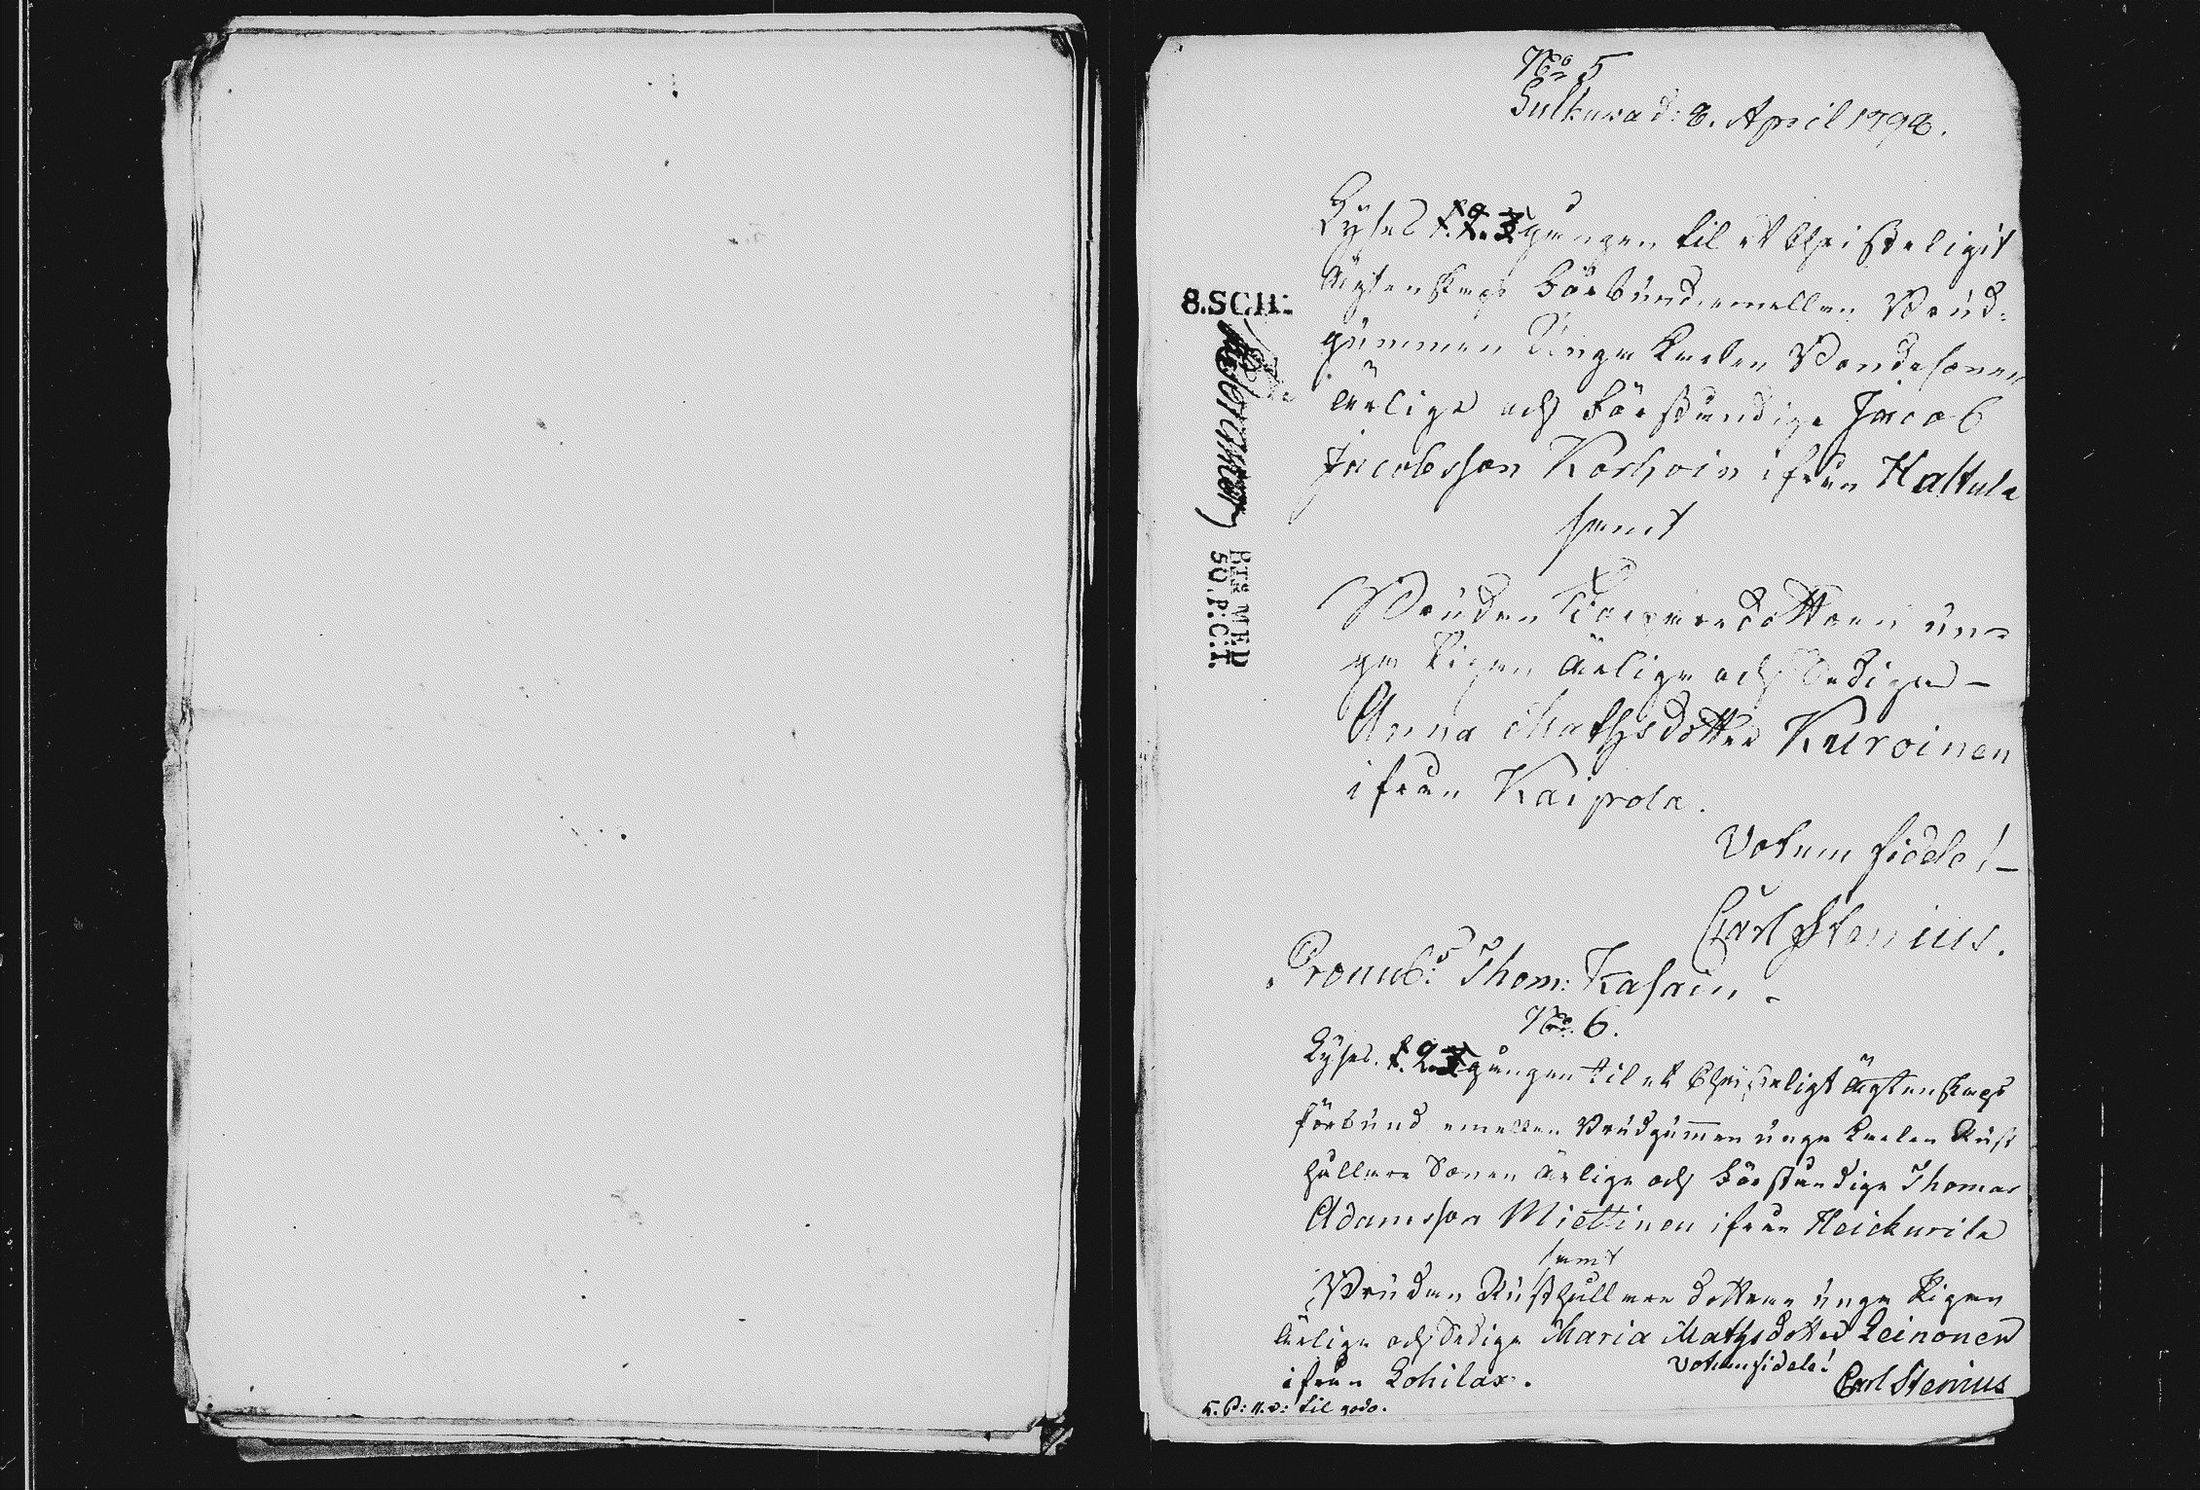 No 5
Sulkava d: 8. April 1798.
Lyses 1. 2. 3 gången til et Christeligit
Ägtenskaps Förbund emellan Brud-
gummen Unga Karlen Bondesonen
ärlige och Förståndige Jacob
Jacobsson Korhoin ifrån Haltula
samt
Bruden dottren un-
ga Pigan ärliga och Sediga
Anna Mathsdotter Kuroinen
ifrån Kaipola.
Votum fidele!
Carl Stenius.
Pronub: Thom: Kasain
No. 6.
Lyses. 1. 2. 3 gången til et Christeligt Ägtenskaps
förbund emellan Brudgummen unga Karlen Rust
hållare Sonen ärlige och Förståndige Thomas
Adamsson Miettinen ifrån Heickurila
samt
Bruden Rusthållare dottren unga Pigan
ärliga och Sediga Maria Mathsdotter Leinonen
ifrån Lohilax.
Votum fidele!
Carl Stenius
til godo.
8.SCH:
MED
50.P:C:T.